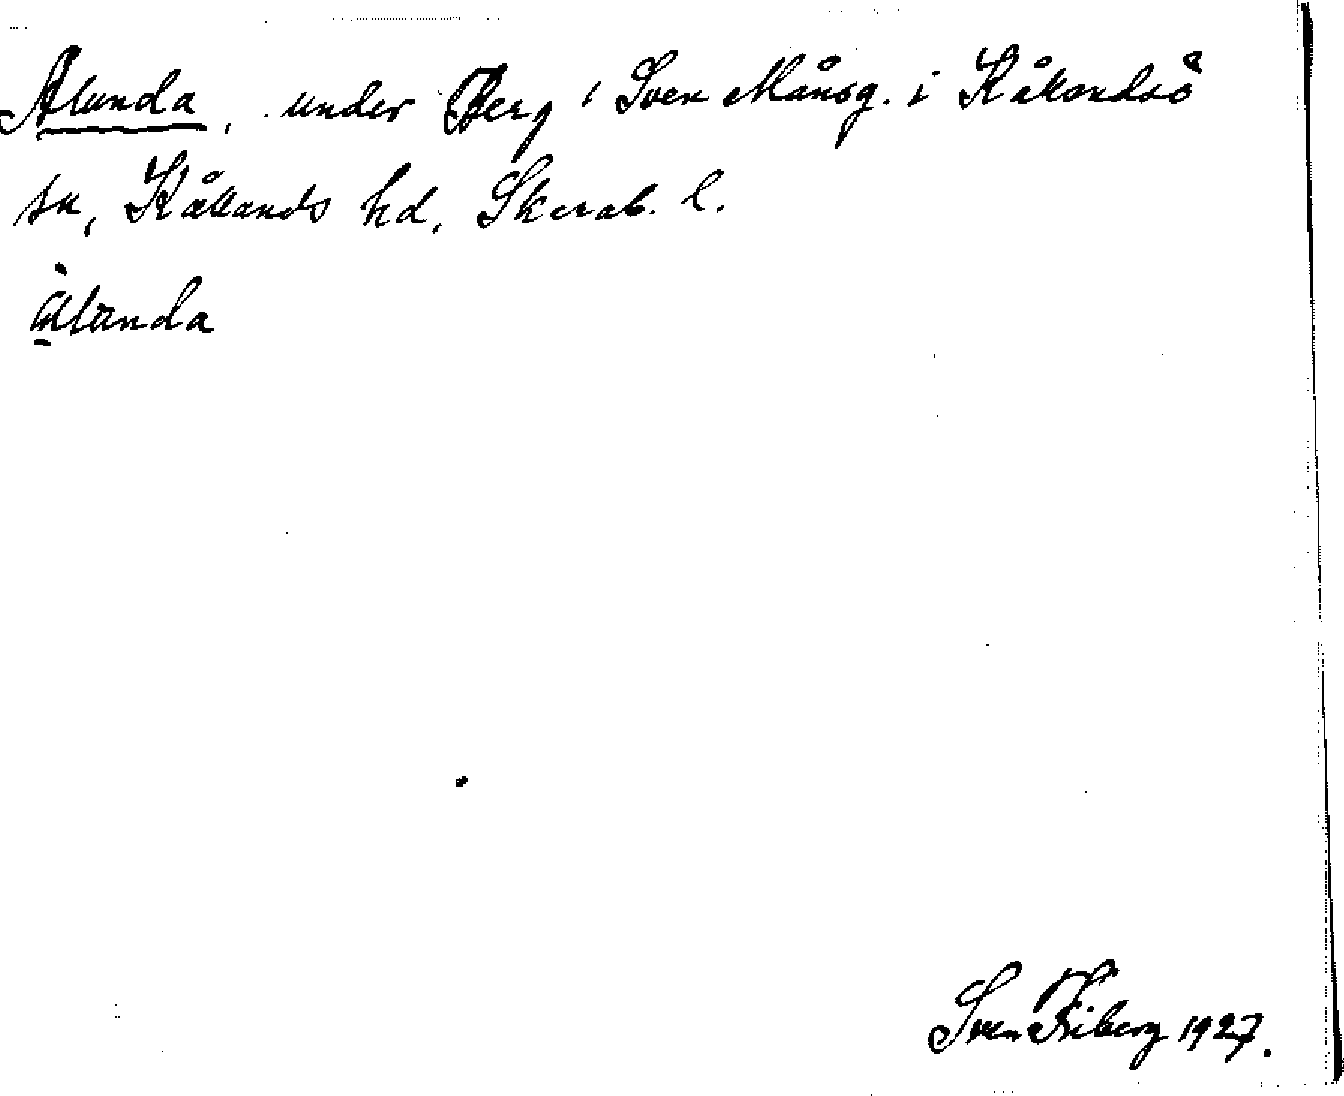 Ålanda, under Berg, Sven Månsg. i Kållandsö
sn, Kållands hd, Skarab. l.
àlanda
Sven Kiberg 1927.